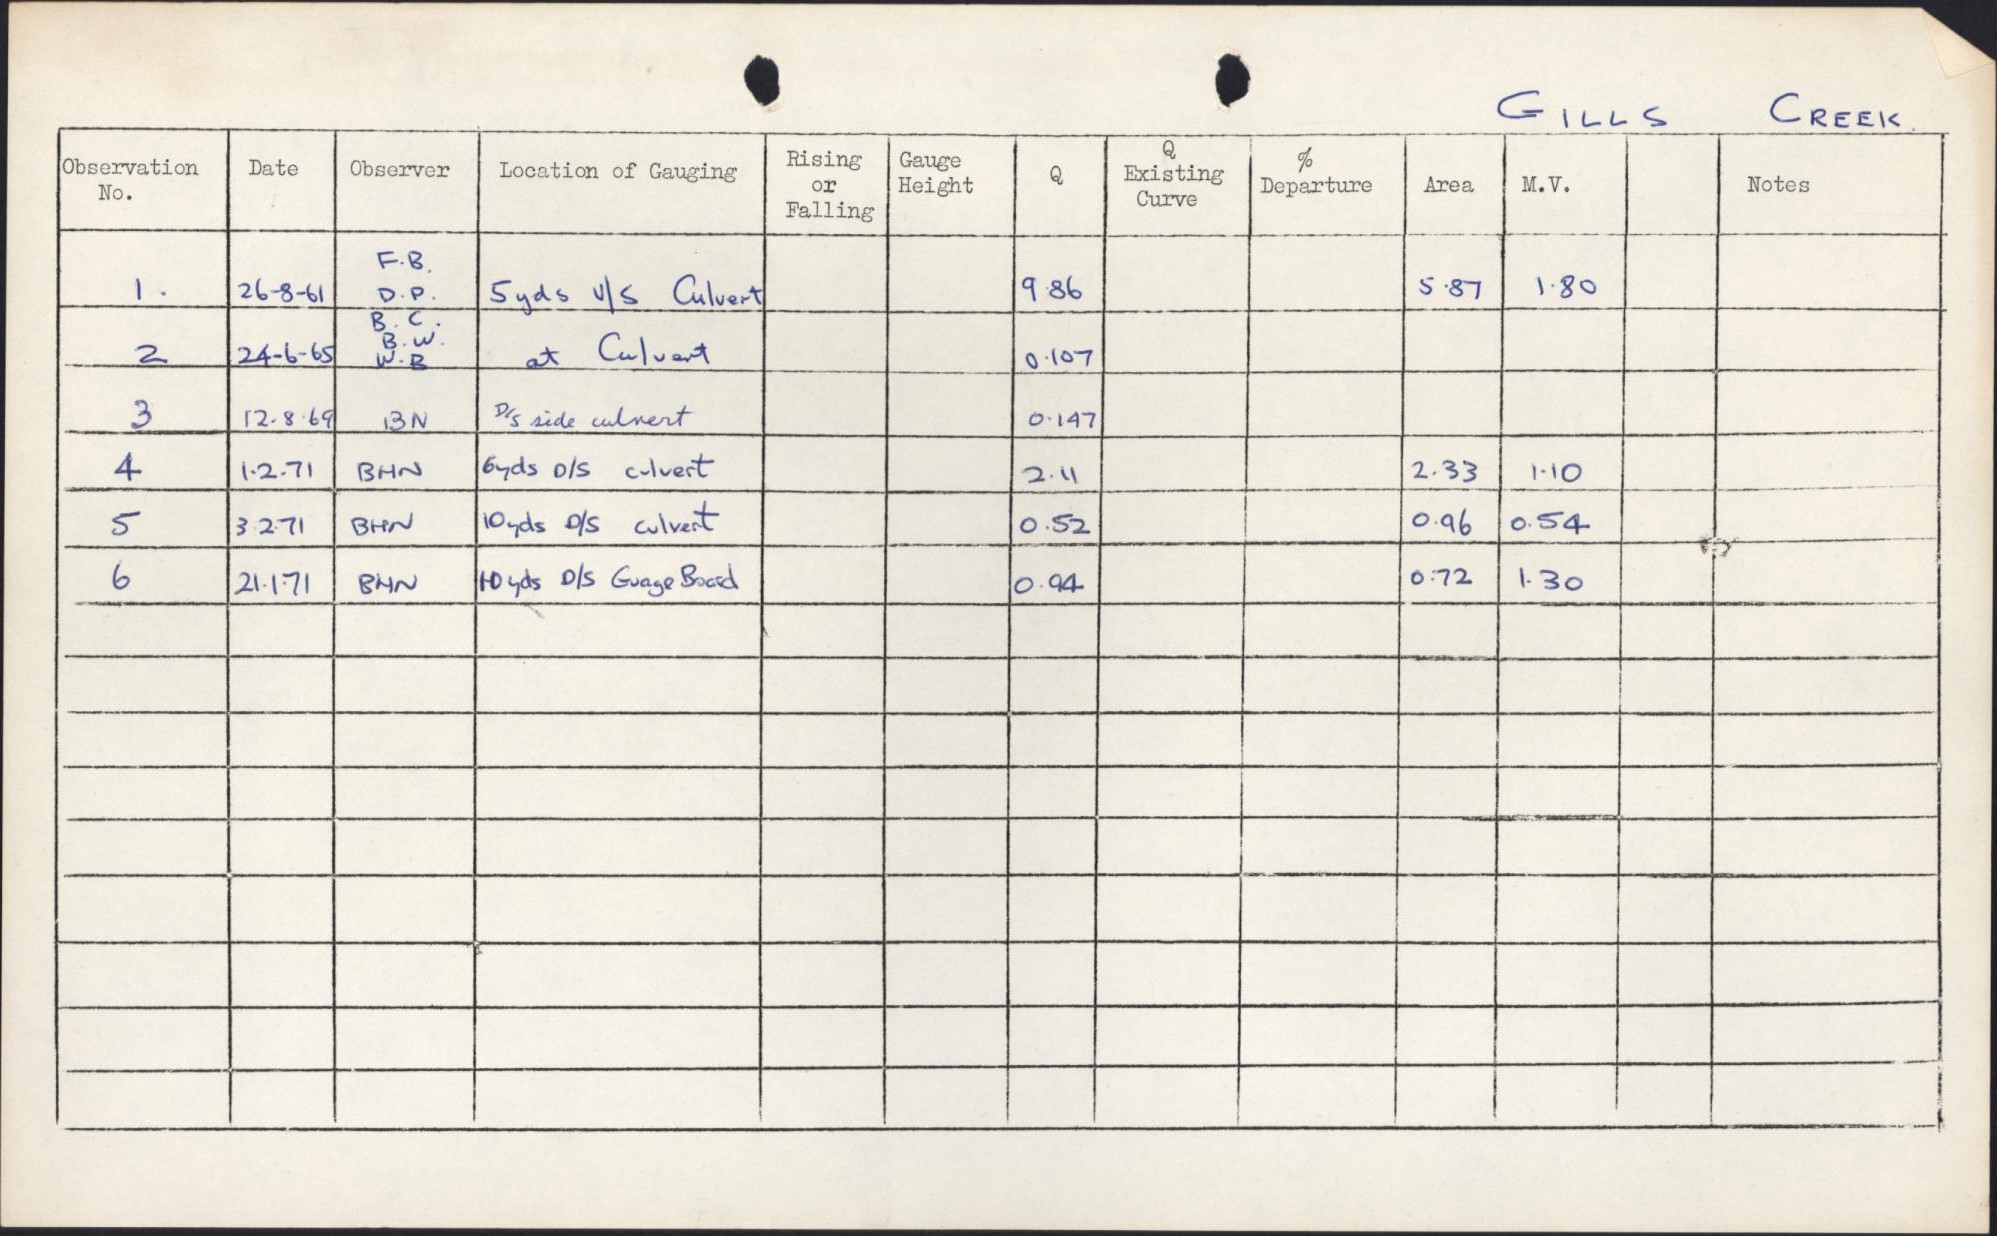 GILLS CREEK
Observation No. Date Observer Location of Gauging Rising or Falling Gauge Height Q Q Existing Curve % Departure Area M.V. Notes
1. 26-8-61 F.B. D.P. 5yds U/S Culvert 9.86 5.87 1.80
2 24-6-65 B.C. B.W. W.B at Culvert 0.107
3 12.8.69 BN D/S side culvert 0.147
4 1.2.71 BHN 6yds D/S culvert 2.11 2.33 1.10
5 3.2.71 BHN 10yds D/S culvert 0.52 0.96 0.54
6 21.1.71 BHN 10yds D/S Guage Board 0.94 0.72 1.30